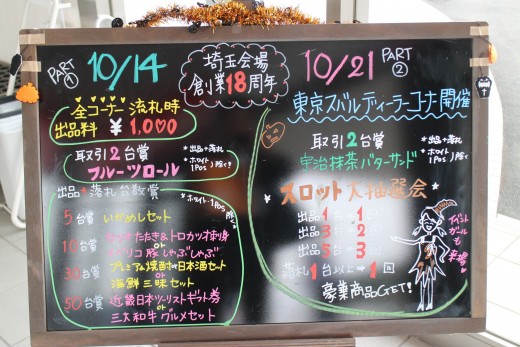 PART ①
10/14
埼玉会場
創業18周年
10/21
PART ②
全コーナー 流札時
出品料 ¥1,000
取引2台賞
フルーツロール
*出品+落札
*ホワイト
1Pos)除く?
出品+落札台数賞
*ホワイト・1Pos)除く
5台賞 いかめしセット
10台賞 たたき&トロカツオ刺身
or
豚しゃぶしゃぶ
30台賞 プレミアム焼酎or日本酒セット
or
海鮮三昧セット
50台賞 近畿日本ツーリストギフト券
or
三大和牛グルメセット
東京スバルディーラーコーナー開催
取引2台賞
宇治抹茶バターサンド
*出品+落札
*ホワイト
1Pos)除く?
スロット大抽選会
出品1台→1回
出品3台→2
出品5台→3
落札1台以上→1回
豪華商品GET!
イベント
ガールも
来場